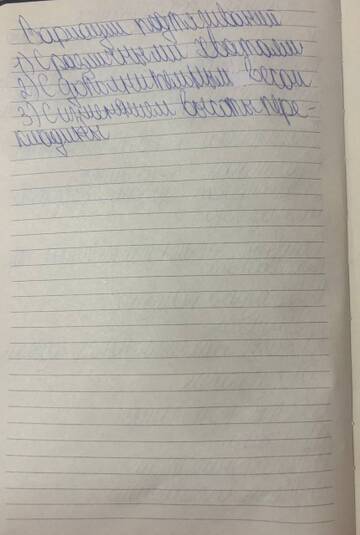 Вариации подтягиваний
1) С различными хватами
2) С дополнительным весом
3) С изменением высоты пере-
кладины